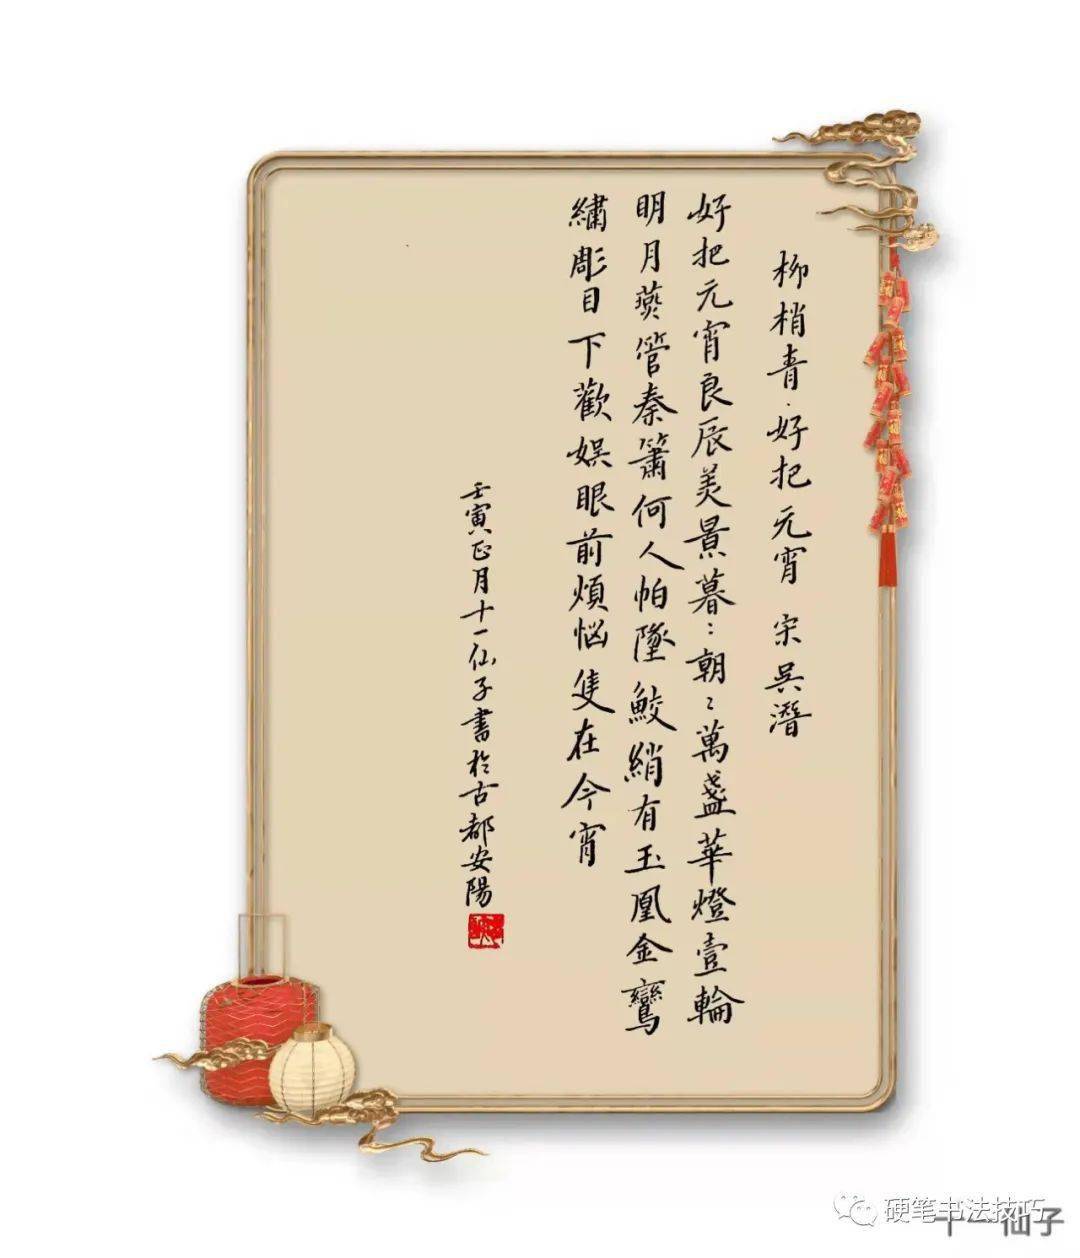 柳梢青·好把元宵 宋 吳潛
好把元宵良辰美景暮:朝:萬盞華燈壹輪
明月燕管秦簫何人怕墜鮫綃有玉凰金鸞
繡彫目下歡娛眼前煩惱隻在今宵
壬寅正月十一仙子書於古都安陽
硬笔书法技巧
十一仙子